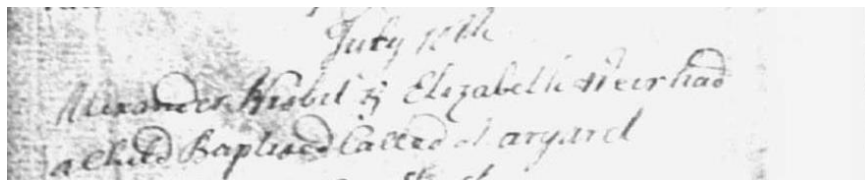 July 10th
Alexander Nisbit & Elizabeth Weir had
a Child Baptised Called Margaret